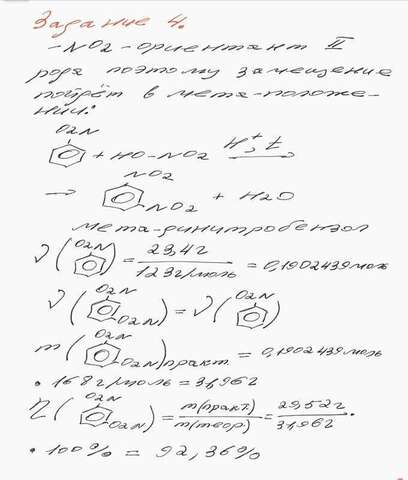 Задание 4.
-NO2-ориентант II
рода поэтому замещение
пойдёт в мета-положе-
нии:
O2N
+ HO-NO2 H+, t →
NO2
→ NO2 + H2O
мета-динитробензол
ν(O2N) = 23,4г / 123г/моль = 0,1902439моль
ν(O2N O2N) = ν(O2N)
m(O2N O2N)практ = 0,1902439моль
· 168г/моль = 31,96г
η(O2N O2N) = m(практ) / m(теор) = 29,52г / 31,96г ·
· 100% = 92,36%